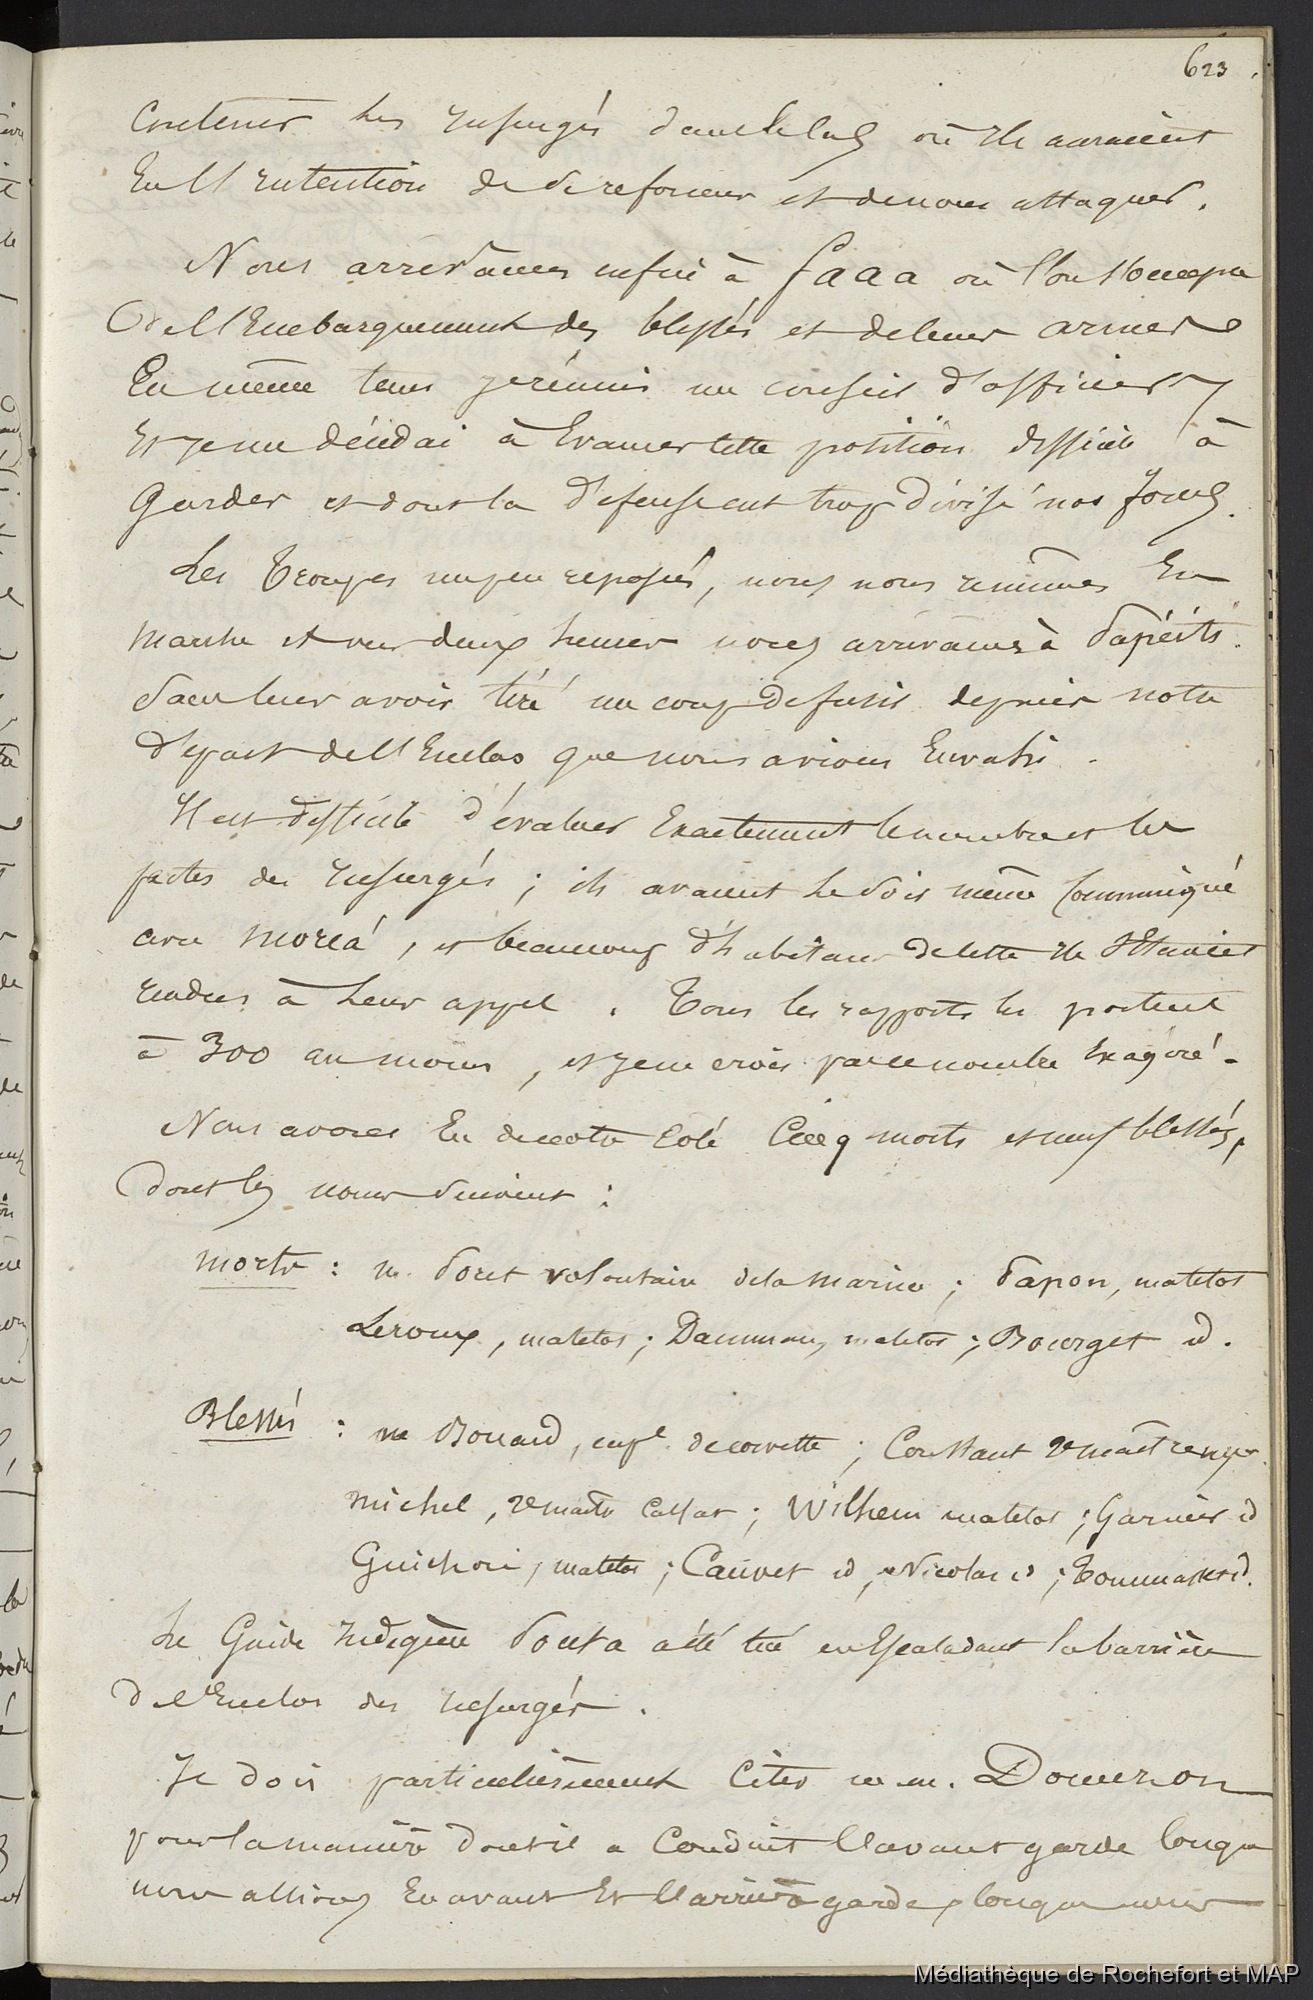 623
Contenir les insurgés dans le cas où ils auraient
Eu l'intention de se reformer et de nous attaquer.
Nous arrivâmes enfin à Faaa où l'on s'occupa
de l'Embarquement des blessés et de leurs armes
En même tems je réunis un conseil d'officiers
et je me décidai à Evacuer cette position difficile à
Garder et dont la défense eut trop divisé nos forces.
Les Troupes un peu reposées, nous nous remîmes En
marche et vers deux heures nous arrivâmes à Papéiti
Sans leur avoir tiré un coup de fusil depuis notre
départ de l'Enclos que nous avions Envahi.
Il est difficile d'évaluer Exactement le nombre et les
pertes des insurgés ; ils avaient le soir même Communiqué
avec Moréa, et beaucoup d'habitans de cette île s'étaient
rendus à leur appel. Tous les rapports les portent
à 300 au moins, et je ne crois pas ce nombre Exagéré.
Nous avons Eu de notre Coté Cinq morts et neuf blessés,
dont les noms suivent :
Morts : M. Poret volontaire de la marine ; Papon, matelot
Leroux, matelot ; matelot ; Bourget id.
Blessés : M Bonard, Capne de corvette ; Constant 2e maître
Michel, 2e maître Calfat ; Wilhem matelot ; Garnier id
Guichon, matelot ; Cauvet id, Nicolas id ; id.
Le Guide indigène a été tué en Escaladant la barrière
de l'Enclos des insurgés.
Je dois particulièrement Citer m.m.
pour la manière dont il a Conduit l'avant garde lorsque
nous allions En avant Et l'arrière garde, lorsque nous
Médiathèque de Rochefort et MAP